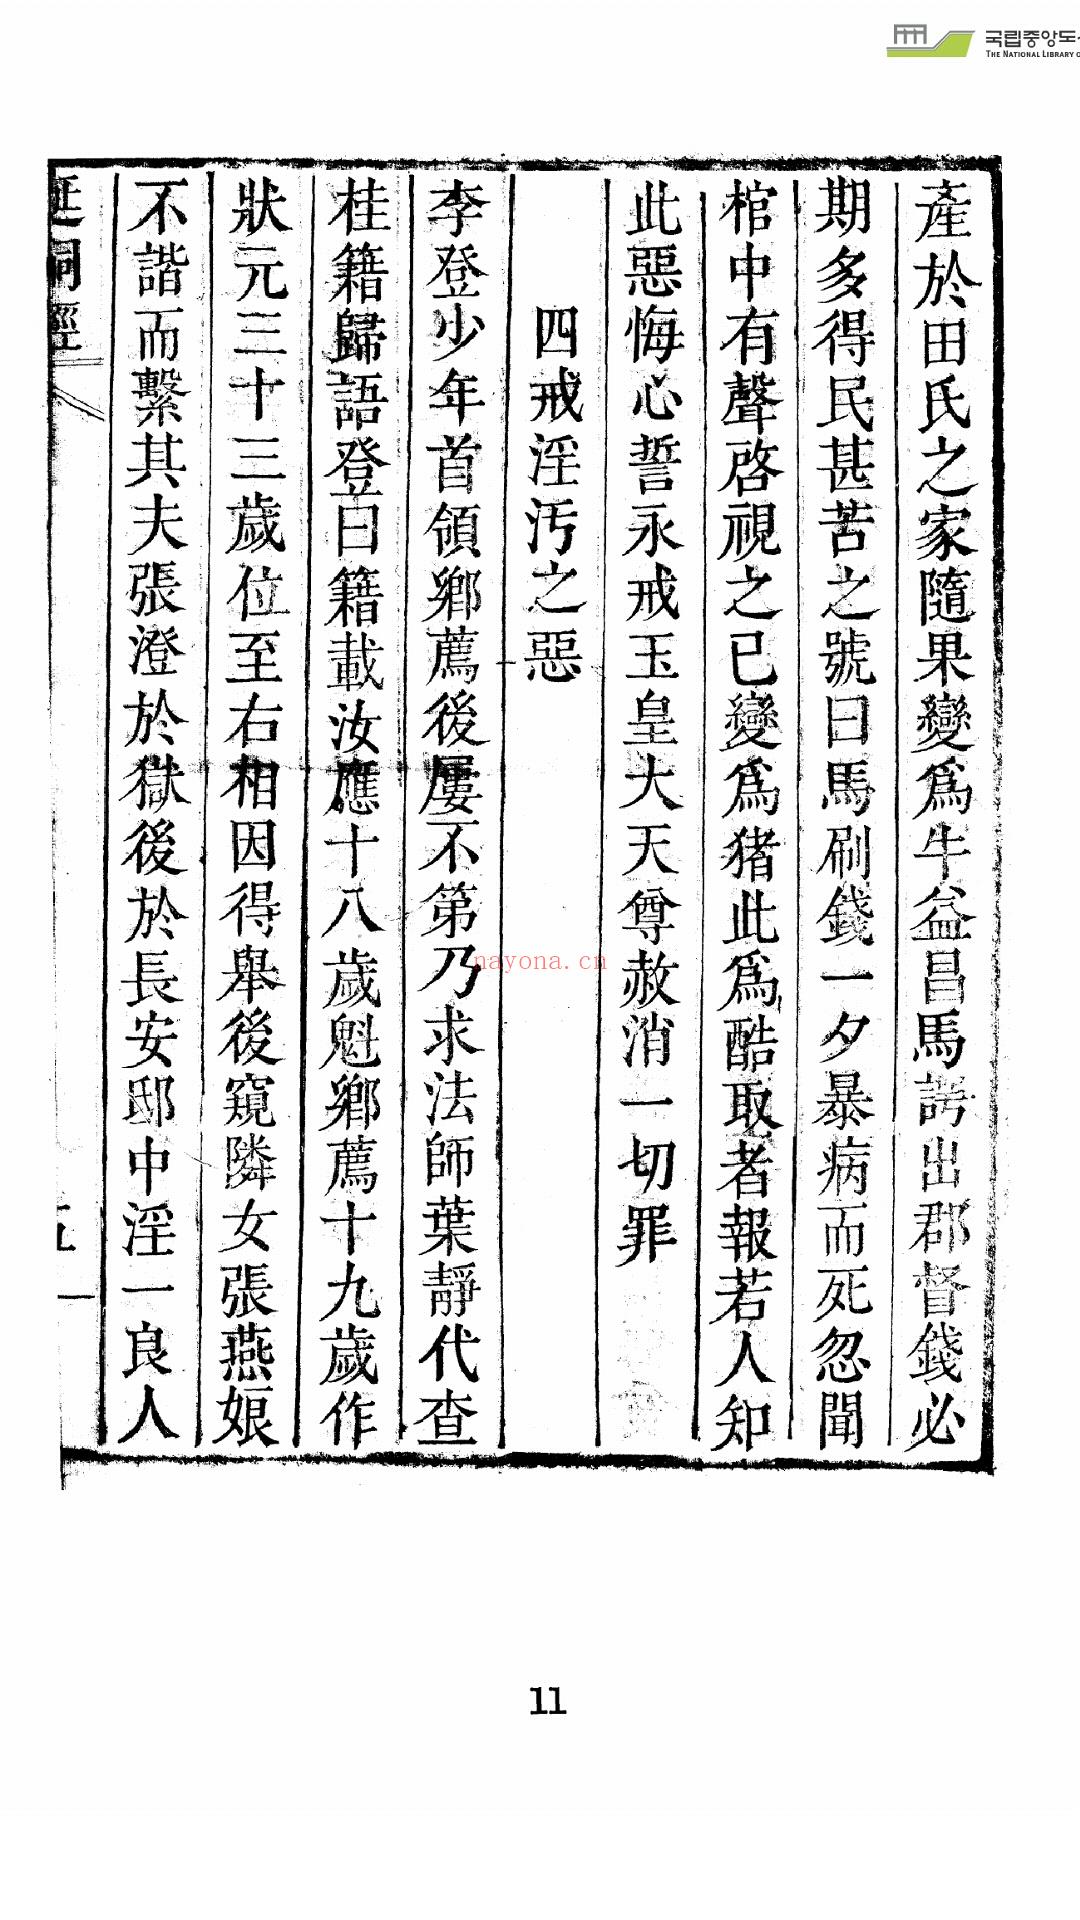 국립중앙도
THE NATIONAL LIBRARY O
產於田氏之家隨果變爲牛益昌馬諤出郡督錢必
期多得民甚苦之號曰馬刷錢一夕暴病而死忽聞
棺中有聲啓視之已變爲猪此爲酷取者報若人知
此惡悔心誓永戒玉皇大天尊赦消一切罪
四戒淫汚之惡
李登少年首領鄕薦後屢不第乃求法師葉靜代查
桂籍歸語登曰籍載汝應十八歲魁鄕薦十九歲作
狀元三十三歲位至右相因得舉後窺隣女張燕娘
不諧而繫其夫張澄於獄後於長安邸中淫一良人
經
nayona.cn
11